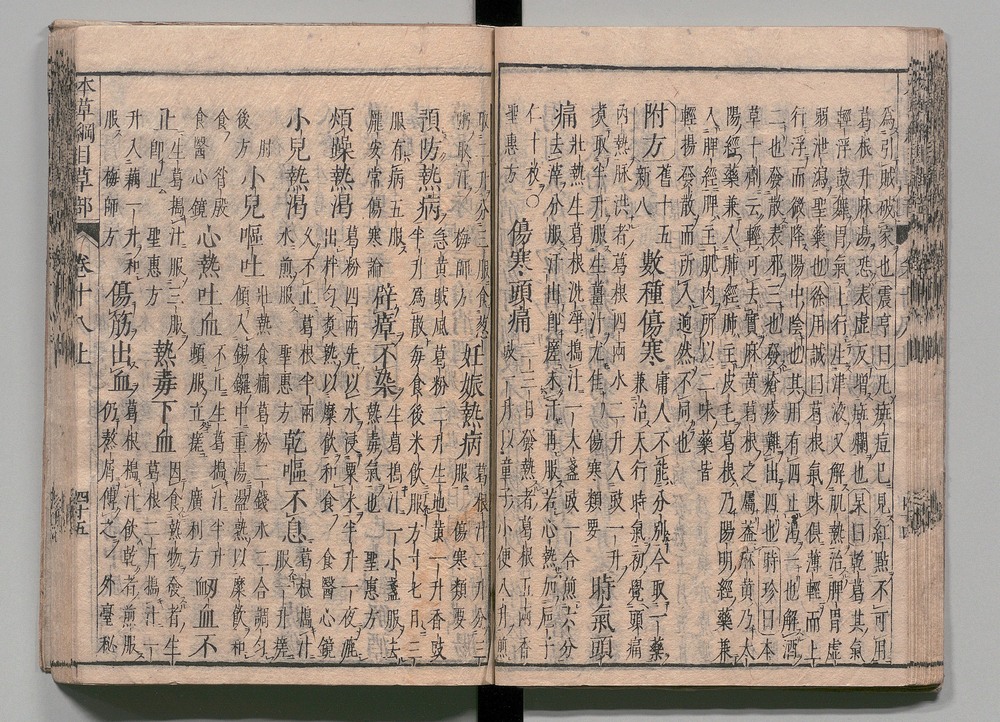 爲引賊破家也震亨曰凡斑痘已見紅點不可用
葛根升麻湯恐表虛反增斑爛也杲曰乾葛其氣
輕浮鼓舞胃氣上行生津液又解肌熱治脾胃虛
弱泄瀉聖藥也徐用誠曰葛根氣味俱薄輕而上
行浮而微降陽中陰也其用有四止渴一也解酒
二也發散表邪三也發瘡疹難出四也時珍曰本
草十劑云輕可去實麻黃葛根之屬葢麻黃乃太
陽經藥兼入肺經肺主皮毛葛根乃陽明經藥兼
入脾經脾主肌肉所以二味藥皆
輕揚發散而所入逈然不同也
附方 舊十五 新八 數種傷寒 庸人不能分別今取一藥 兼治天行時氣初覺頭痛
內熱脉洪者葛根四兩水二升入豉一升
煑取半升服生薑汁尤佳 傷寒類要 時氣頭
痛 壯熱生葛根洗淨搗汁一大盞豉一合煎六分
去滓分服汗出即瘥未汗再服若心熱加巵子
仁十枚 ○ 傷寒頭痛 二三日發熱者葛根五兩香
聖惠方 豉一升以童子小便八升煎
取二升分三服食葱 妊娠熱病 葛根汁二升分三
粥取汗 梅師方 服 傷寒類要
預防熱病 急黃賊風葛粉二升生地黃一升香豉
半升爲散每食後米飲服方寸匕日三
服有病五服 辟瘴不染 生葛搗汁一小盞服去
龐安常傷寒論 熱毒氣也 聖惠方
煩躁熱渴 葛粉四兩先以水浸粟米半升一夜漉
出拌勻煑熟以糜飲和食 食醫心鏡
小兒熱渴 久不止葛根半兩 乾嘔不息 葛根搗汁
水煎服 聖惠方 服一升瘥
肘 後方 小兒嘔吐 壯熱食癇葛粉二錢水二合調勻
傾入錫鑼中重湯盪熱以糜飲和
食 昝殷 心熱吐血 不止生葛搗汁半升 衂血不
食醫心鏡 頓服立瘥 廣利方
止 生葛搗汁服三服 熱毒下血 因食熱物發者生
即止 聖惠方 葛根二斤搗汁一
升入藕一升和 傷筋出血 葛根搗汁飲乾者煎服
服 梅師方 仍熬屑傅之 外臺秘
本草綱目草部 卷十八上 四十五